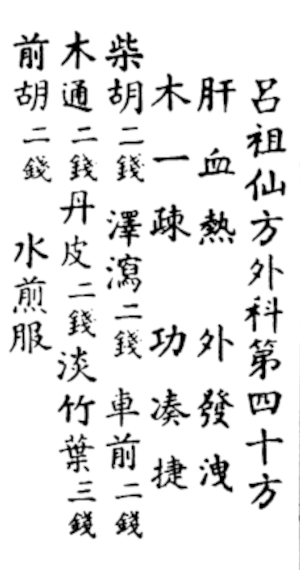 呂祖仙方外科第四十方
肝血熱 外發洩
木一疎 功湊捷
柴胡二錢 澤瀉二錢 車前二錢
木通二錢 丹皮二錢 淡竹葉三錢
前胡二錢 水煎服